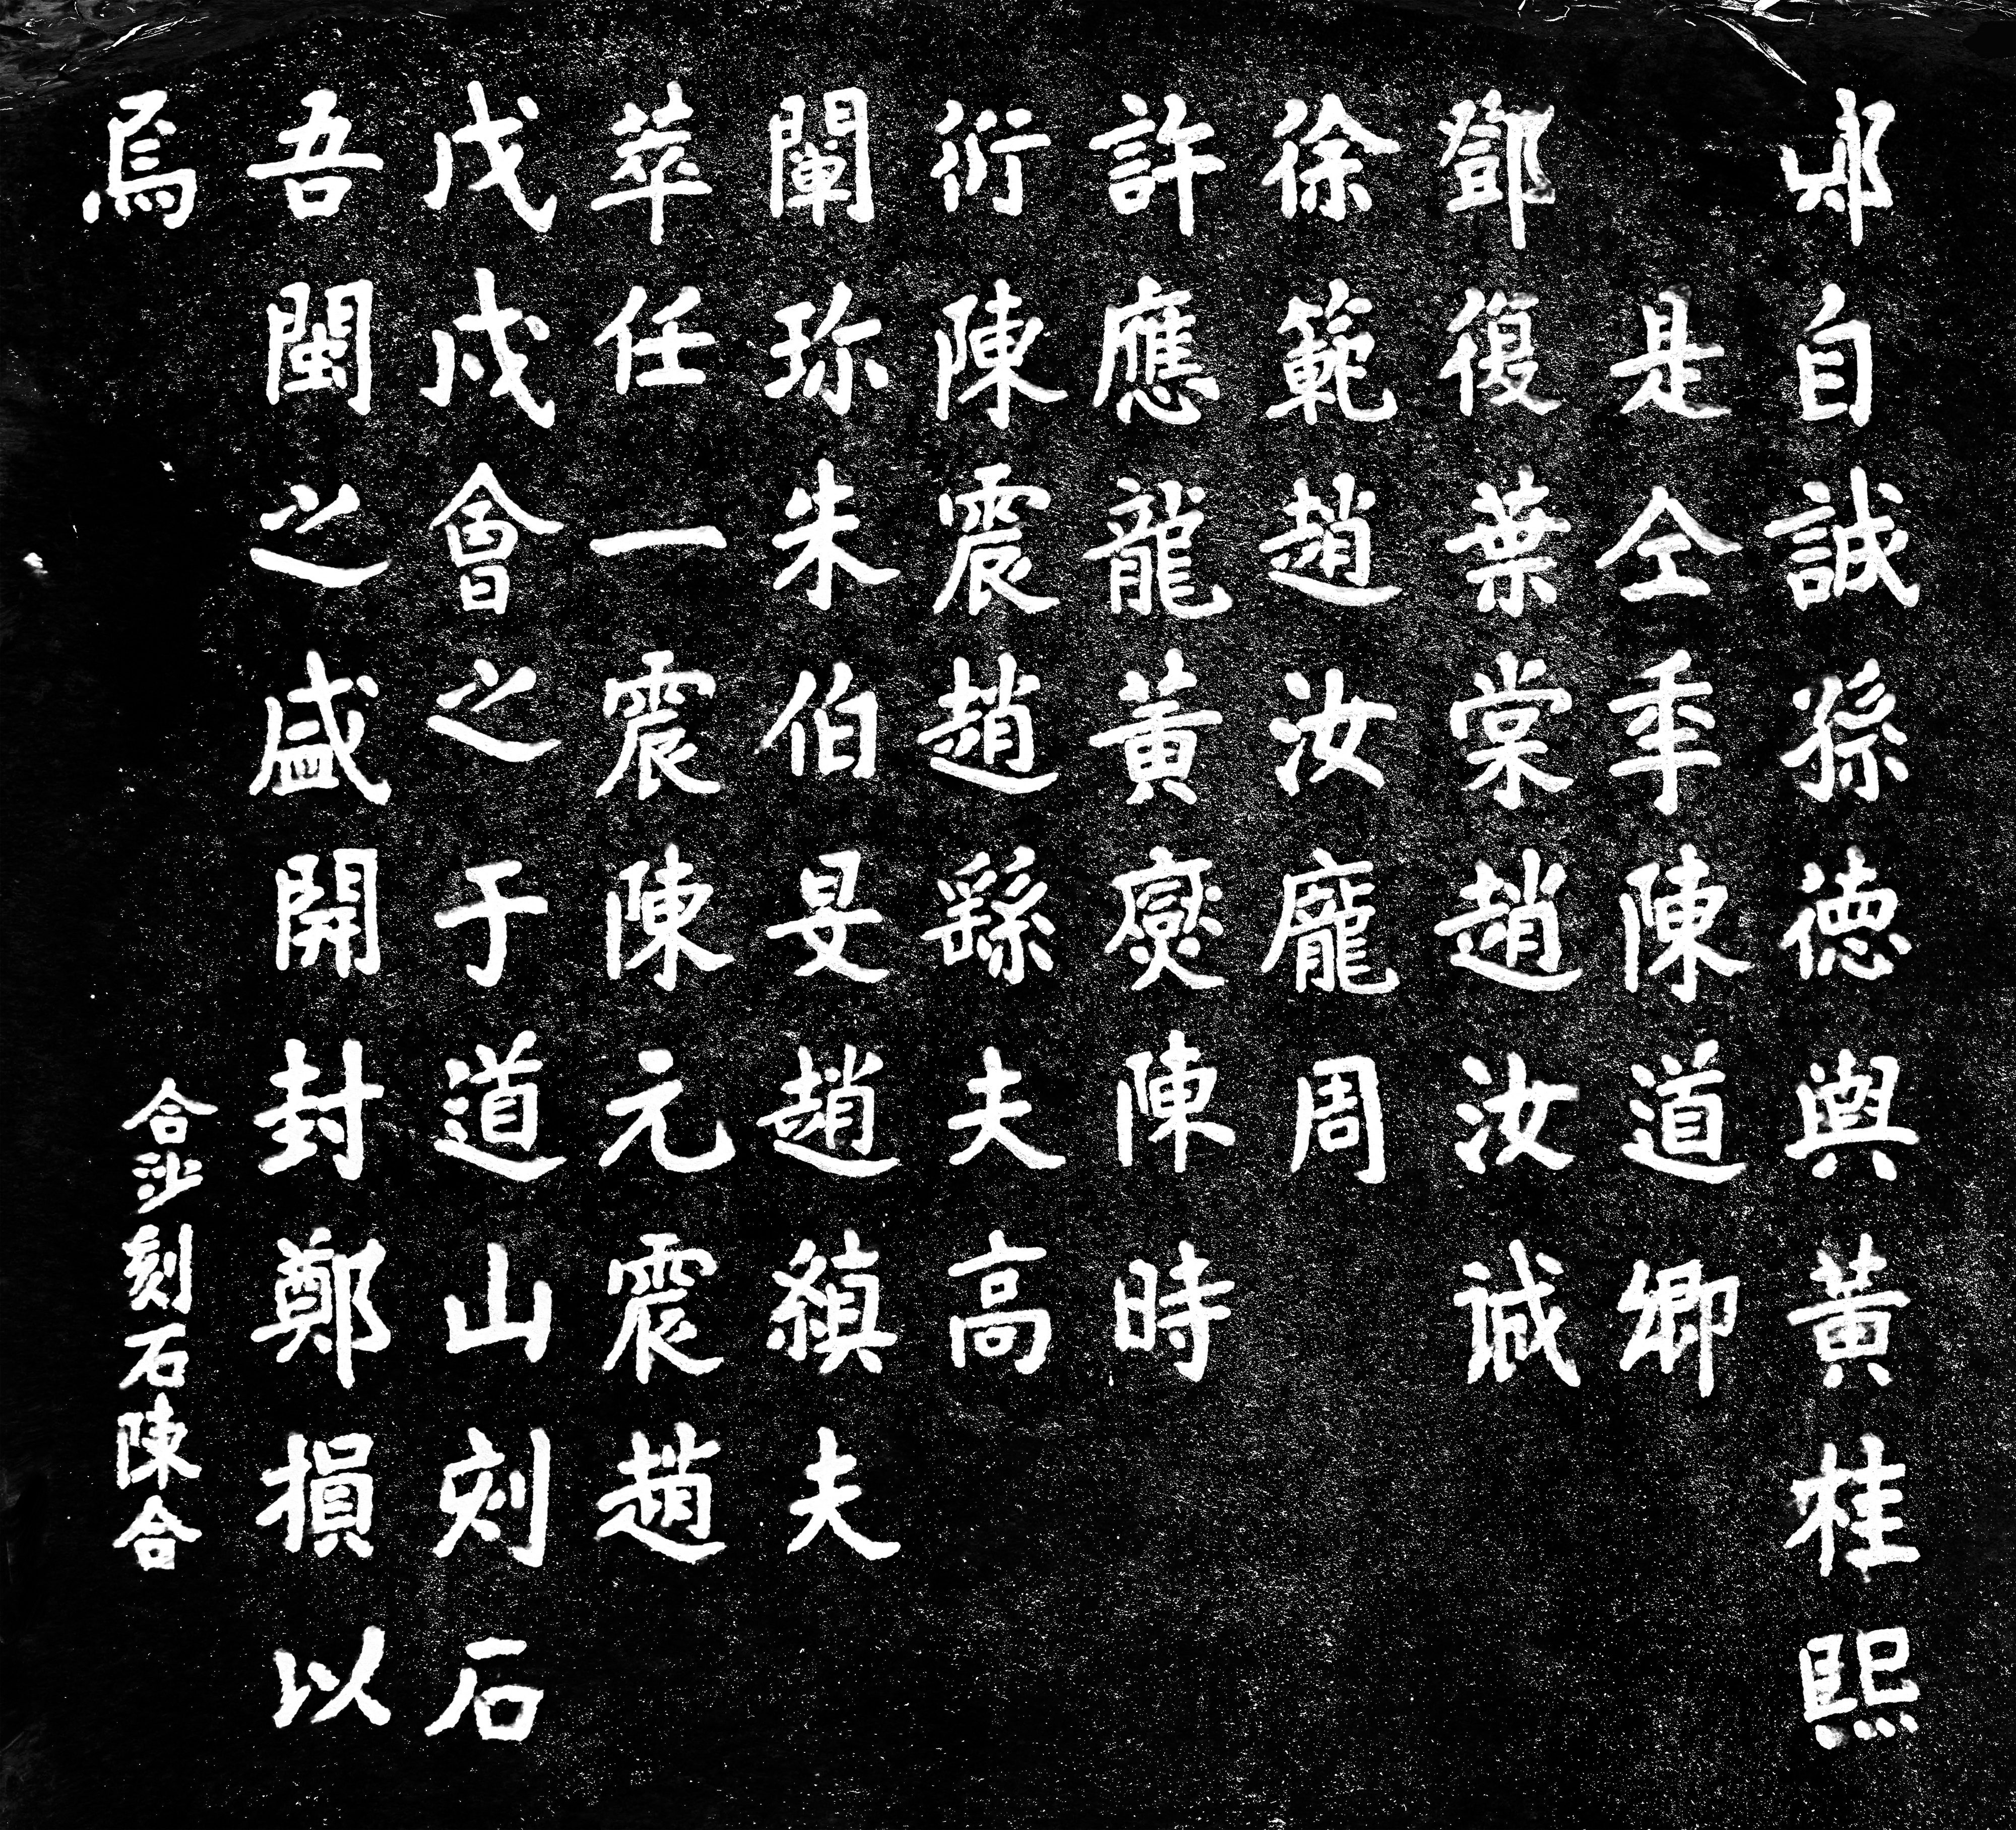 自誠孫德與黃桂熙
是仝年陳道卿
鄧復葉棠趙汝
徐範趙汝龐周
許應龍黃燮陳時
衍陳震趙繇夫高
闡珎朱伯旻趙縝夫
萃任一震陳元震趙
戊戌會之于道山刻石
吾閩之盛開封鄭損以
焉
合沙刻石陳合